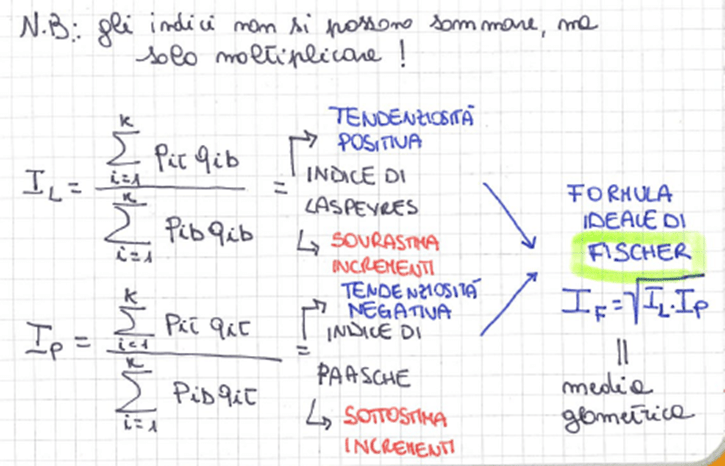 N.B.: gli indici non si possono sommare, ma
solo moltiplicare !
TENDENZIOSITÀ
POSITIVA
I_L = \frac{\sum_{i=1}^{K} P_{it} q_{ib}}{\sum_{i=1}^{K} P_{ib} q_{ib}} = INDICE DI
LASPEYRES
↳ SOVRASTIMA
INCREMENTI
TENDENZIOSITÀ
NEGATIVA
I_P = \frac{\sum_{i=1}^{K} P_{it} q_{it}}{\sum_{i=1}^{K} P_{ib} q_{it}} = INDICE DI
PAASCHE
↳ SOTTOSTIMA
INCREMENTI
FORMULA
IDEALE DI
FISCHER
I_F = \sqrt{I_L \cdot I_P}
||
media
geometrica